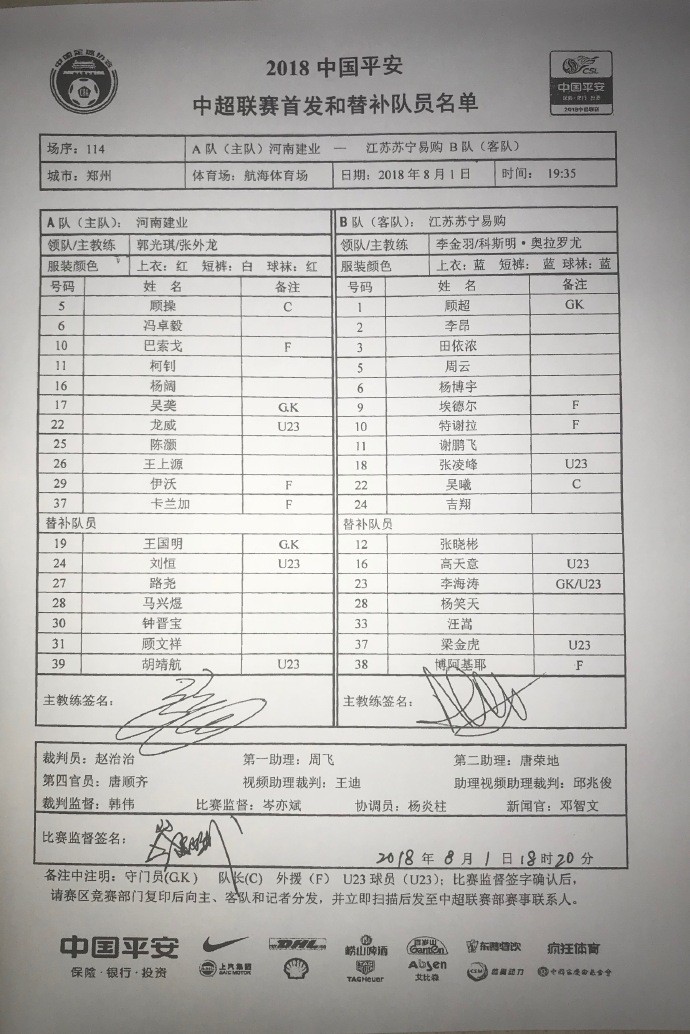 中国足球协会
2018 中国平安
CSL
中国平安
保险·银行·投资
2018中超联赛
中超联赛首发和替补队员名单
场序：114 A 队（主队）河南建业 — 江苏苏宁易购 B 队（客队）
城市：郑州 体育场：航海体育场 日期：2018 年 8 月 1 日 时间： 19:35
A 队（主队）： 河南建业 B 队（客队）： 江苏苏宁易购
领队/主教练 郭光琪/张外龙 领队/主教练 李金羽/科斯明·奥拉罗尤
服装颜色 上衣：红 短裤：白 球袜：红 服装颜色 上衣：蓝 短裤： 蓝 球袜：蓝
号码 姓 名 备注 号码 姓 名 备注
5 顾操 C 1 顾超 GK
6 冯卓毅 2 李昂
10 巴索戈 F 3 田依浓
11 柯钊 5 周云
16 杨阔 6 杨博宇
17 吴龑 G.K 9 埃德尔 F
22 龙威 U23 10 特谢拉 F
25 陈灏 11 谢鹏飞
26 王上源 18 张凌峰 U23
29 伊沃 F 22 吴曦 C
37 卡兰加 F 24 吉翔
替补队员 替补队员
19 王国明 G.K 12 张晓彬
24 刘恒 U23 16 高天意 U23
27 路尧 23 李海涛 GK/U23
28 马兴煜 28 杨笑天
30 钟晋宝 33 汪嵩
31 顾文祥 37 梁金虎 U23
39 胡靖航 U23 38 博阿基耶 F
主教练签名： 主教练签名：
裁判员：赵治治 第一助理：周飞 第二助理：唐荣地
第四官员：唐顺齐 视频助理裁判：王迪 助理视频助理裁判：邱兆俊
裁判监督：韩伟 比赛监督：岑亦斌 协调员：杨炎柱 新闻官：邓智文
比赛监督签名：
2018 年 8 月 1 日 18 时 20 分
备注中注明：守门员(G.K) 队长(C) 外援（F） U23 球员（U23）；比赛监督签字确认后，
请赛区竞赛部门复印后向主、客队和记者分发，并立即扫描后发至中超联赛部赛事联系人。
中国平安 DHL 崂山啤酒 Ganten 东鹏特饮 疯狂体育
保险·银行·投资 上汽集团 TAGHeuer Absen
艾比森